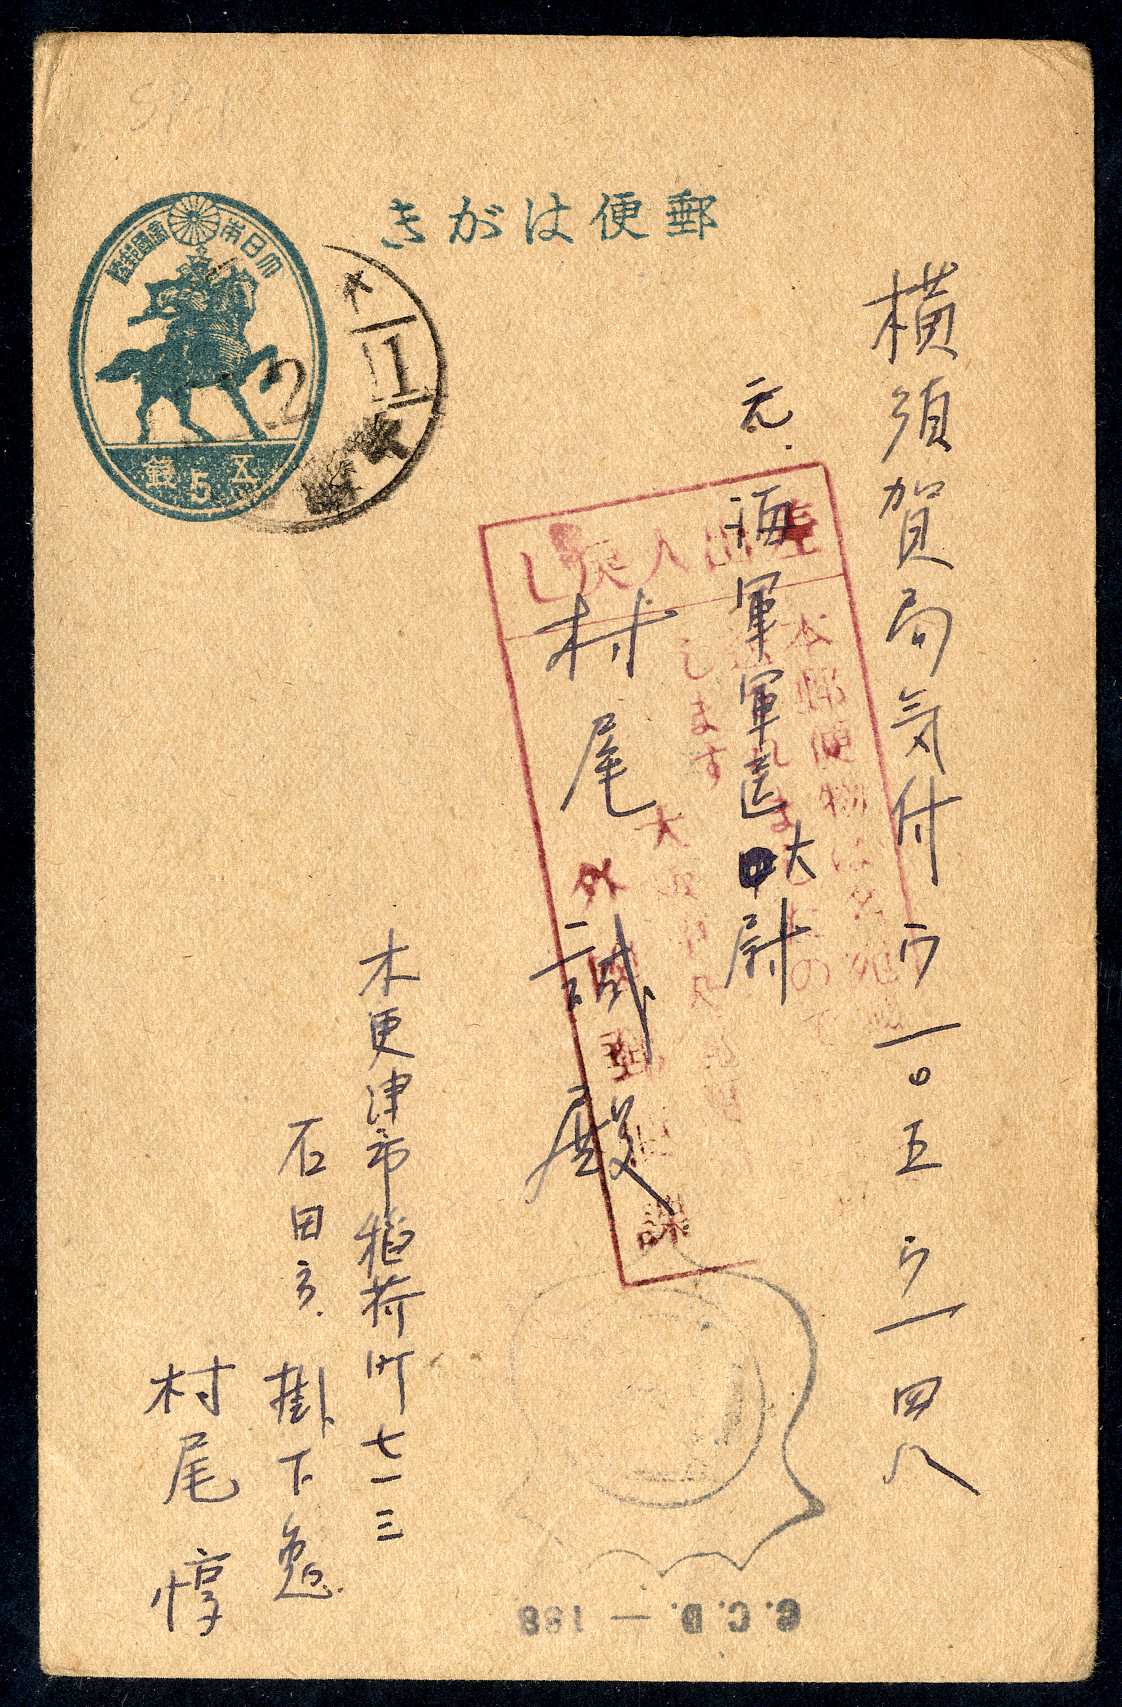 郵便はがき
大日本帝國郵便
五5錢
横須賀局気付ウ一〇五ウ一四八
元.海軍軍医大尉
村尾誠殿
差出人戻し
本郵便物は名宛
します
大
外國郵便課
木更津市稲荷町七一三
石田方.
掛下勉.
村尾惇
C.C.D.—188
2
11